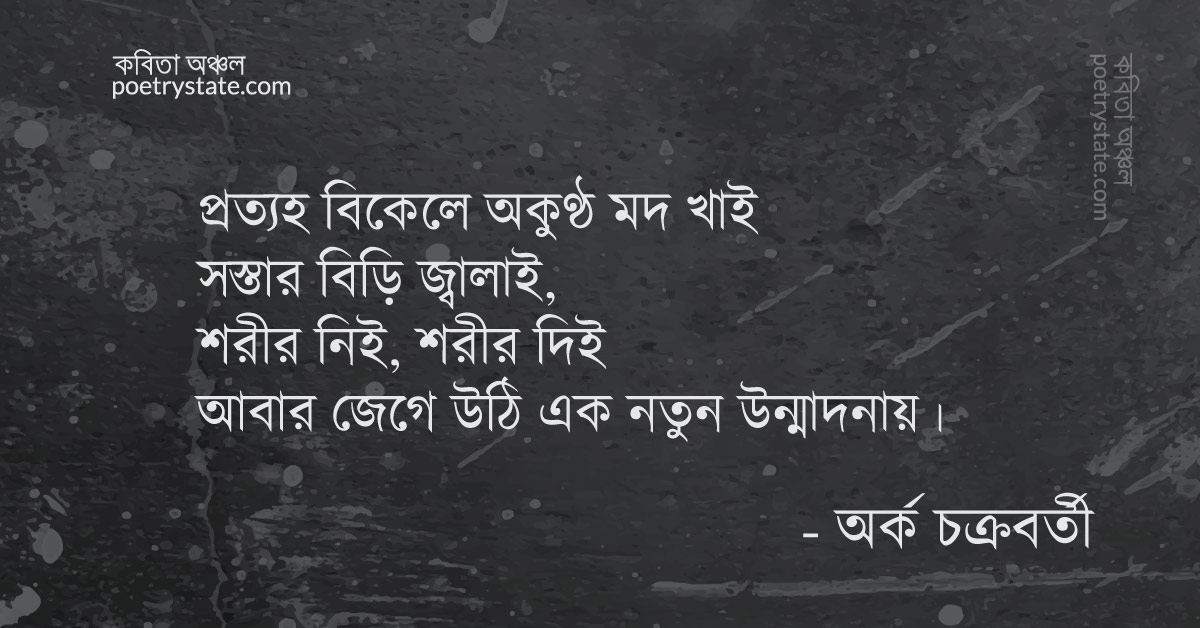 কবিতা অঞ্চল
poetrystate.com
কবিতা অঞ্চল
poetrystate.com
প্রত্যহ বিকেলে অকুণ্ঠ মদ খাই
সস্তার বিড়ি জ্বালাই,
শরীর নিই, শরীর দিই
আবার জেগে উঠি এক নতুন উন্মাদনায়।
- অর্ক চক্রবর্তী